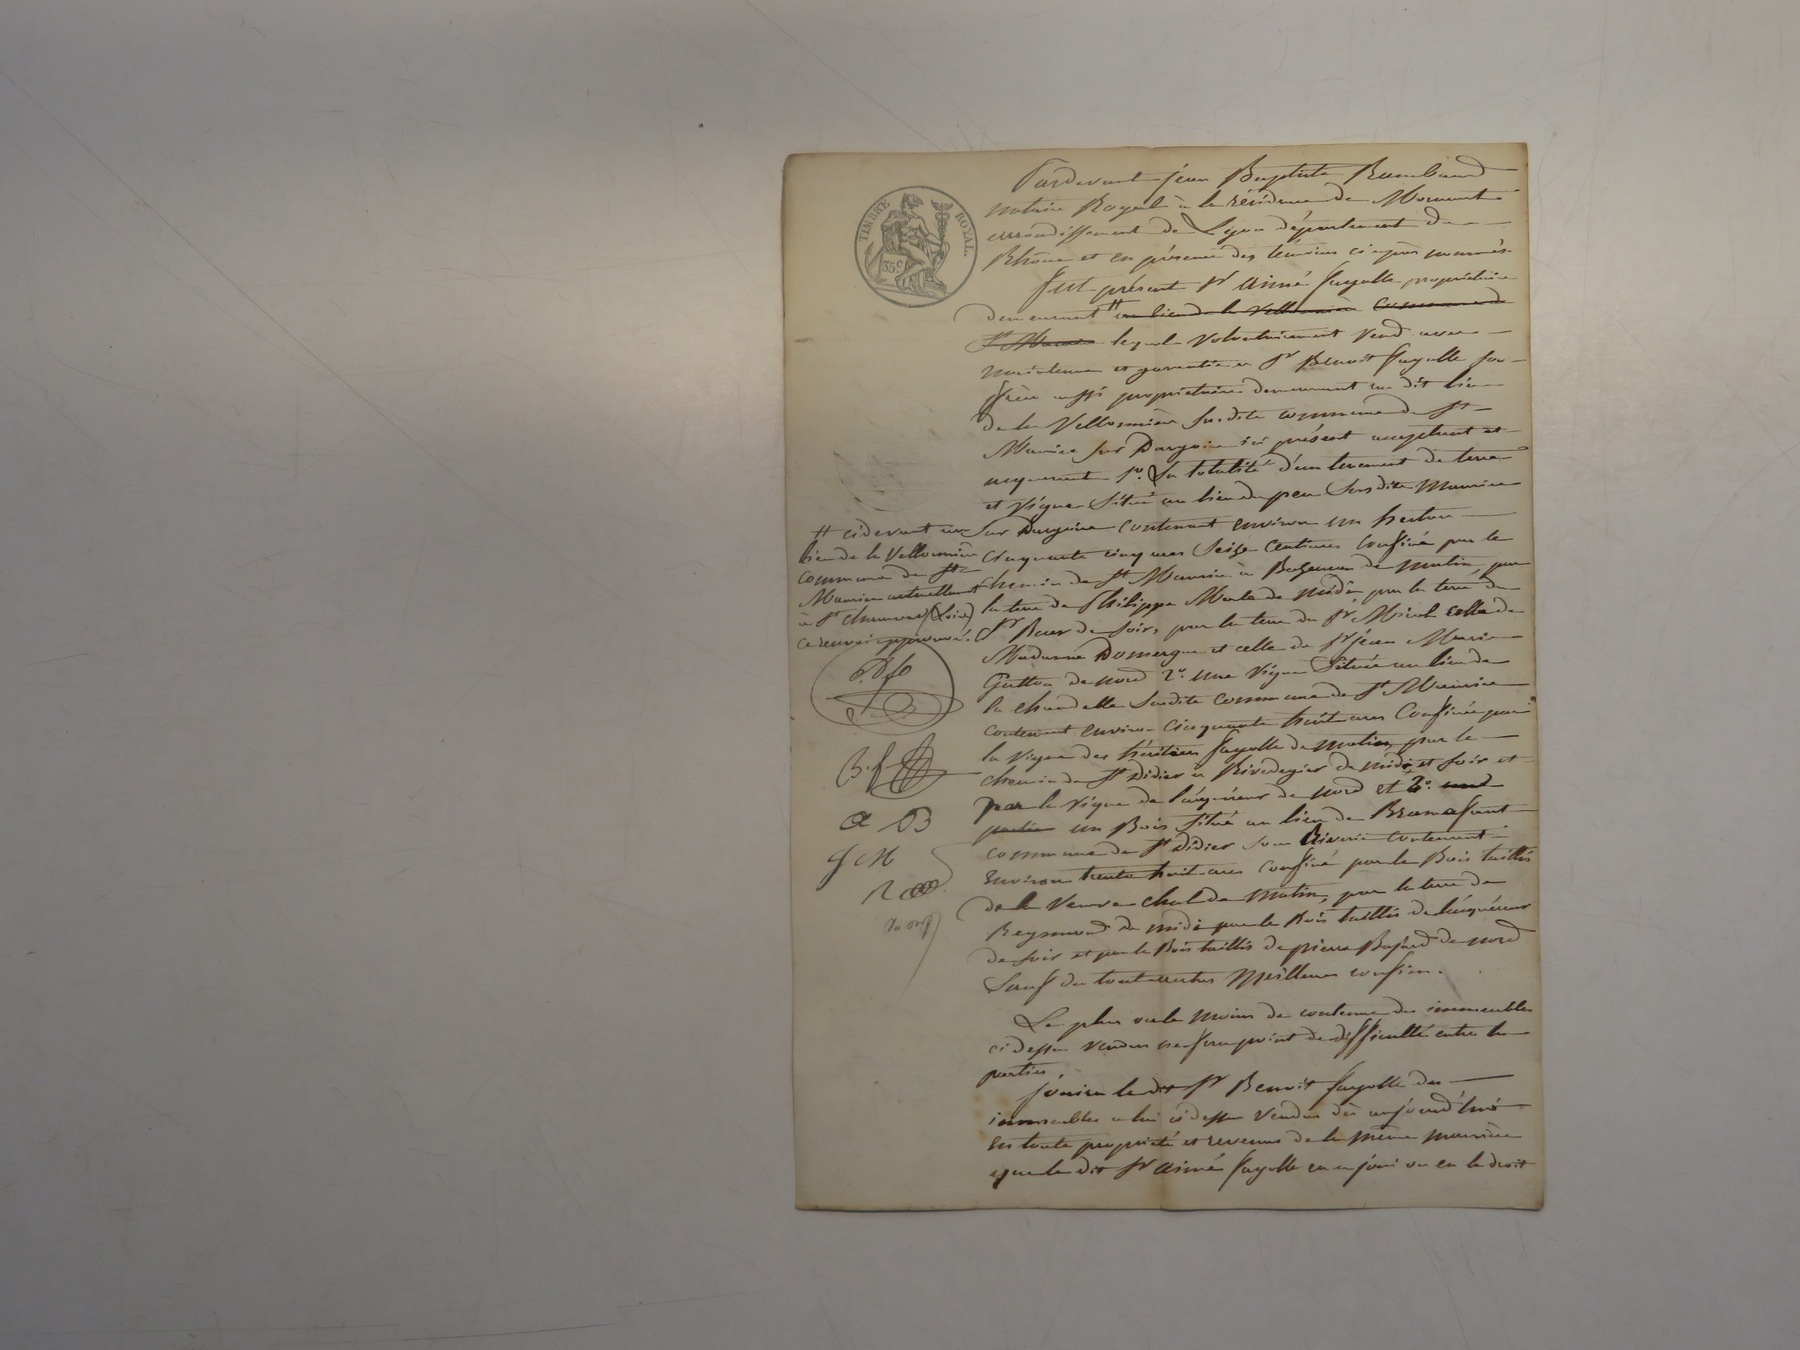 TIMBRE ROYAL.
35 c
Pardevant jean Baptiste Rambaud
notaire Royal à la résidence de Mornant
arrondissement de Lyon département du
Rhône et en présence des témoins ci après nommés
fut présent Sr Aimé fayolle propriétaire
demeurant # au lieu de la Vellonnière commune de
St Maurice lequel volontairement vend avec
maintenue et garantie a Sr Benoit fayolle son
frère aussi propriétaire demeurant au dit lieu
de la Vellonnière susdite commune de St
Maurice sur Dargoire ici présent acceptant et
acquerant 1o. La totalité d'un tenement de terre
et vigne situé au lieu du peu susdite Maurice
sur Dargoire contenant environ un hectare
cinquante cinq ares seize centiares confiné par le
chemin de St Maurice à de matin, par
la terre de Philippe de midi par la terre du
Sr de soir, par la terre du Sr celle de
Madame Domergue et celle de Sr jean Marie
Gutton de nord 2o. une vigne située au lieu de
la chaudelle susdite commune de St Maurice
contenant environ cinquante huit ares confinée par
la vigne des héritiers fayolle de matin, par le
chemin de St Didier a Rivedegier de midi et soir et
par la vigne de l'acquéreur de nord et 3o. une
partie un Bois situé au lieu de Bramafant
commune de St Didier sous Riverie contenant
environ trente huit ares confiné par le Bois taillis
de la veuve chol de matin, par la terre de
Reymond de midi par le Bois taillis de l'acquéreur
de soir et par le Bois taillis de pierre de nord
Sauf de tout autres Meilleurs confins.
Le plus ou le moins de contenue des immeubles
ci dessus vendus ne fera point de difficulté entre les
parties.
jouira le dit Sr Benoit fayolle des
immeubles a lui ci dessus vendus dès aujourd'hui
en toute propriété et revenus de la même manière
que le dit Sr aimé fayolle en a joui ou eu le droit
# cidevant au
lieu de la Vellonnière
commune de St
Maurice actuellement
à St chamond (Loire)
ce renvoi approuvé.
B. f
a B
J M
R